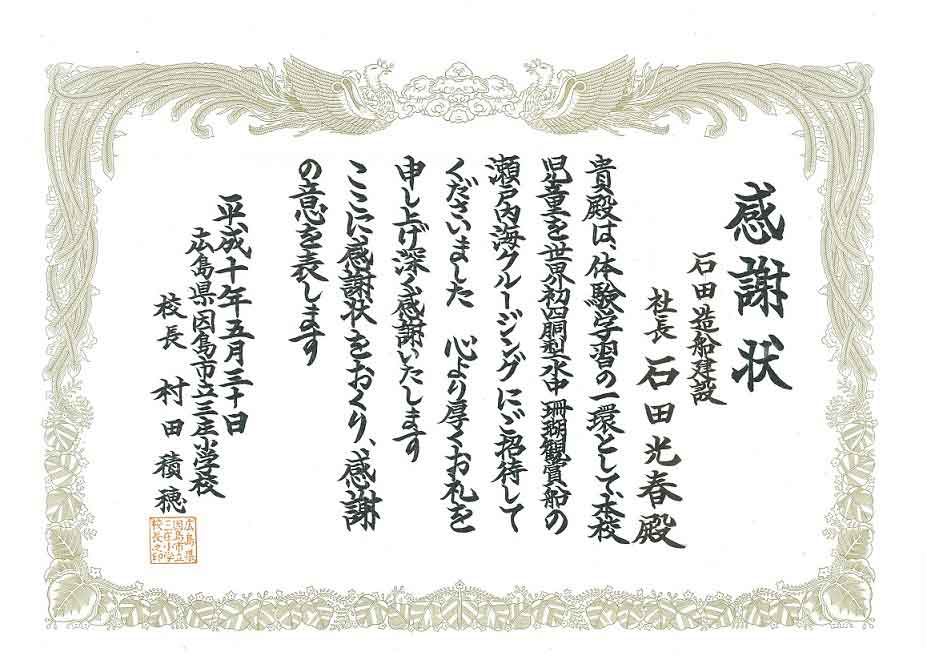 感謝状
石田造船建設
社長 石田光春殿
貴殿は、体験学習の一環として、本校
児童を世界初四胴型水中珊瑚観賞船の
瀬戸内海クルージングにご招待して
くださいました 心より厚くお礼を
申し上げ深く感謝いたします
ここに感謝状をおくり、感謝
の意を表します
平成十年五月三十日
広島県因島市立三庄小学校
校長 村田積穂
広島県
因島市立
三庄小学
校長之印